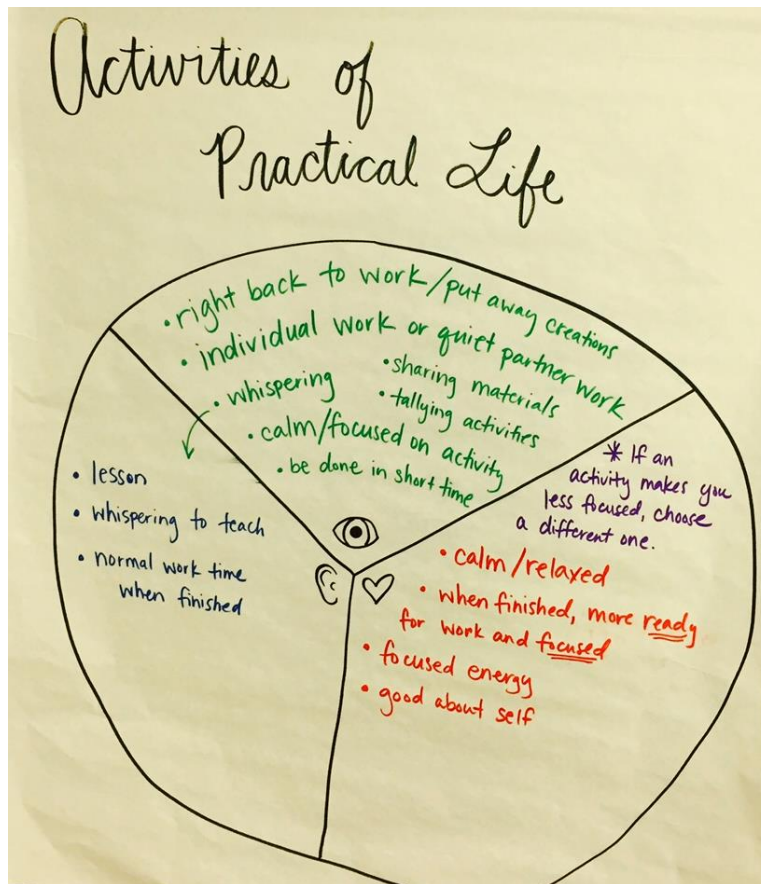 Activities of
Practical Life
• right back to work/put away creations
• individual work or quiet partner work
• whispering
• sharing materials
• tallying activities
• calm/focused on activity
• be done in short time
• lesson
• whispering to teach
• normal work time
when finished
* If an
activity makes you
less focused, choose
a different one.
• calm/relaxed
• when finished, more ready
for work and focused
• focused energy
• good about self